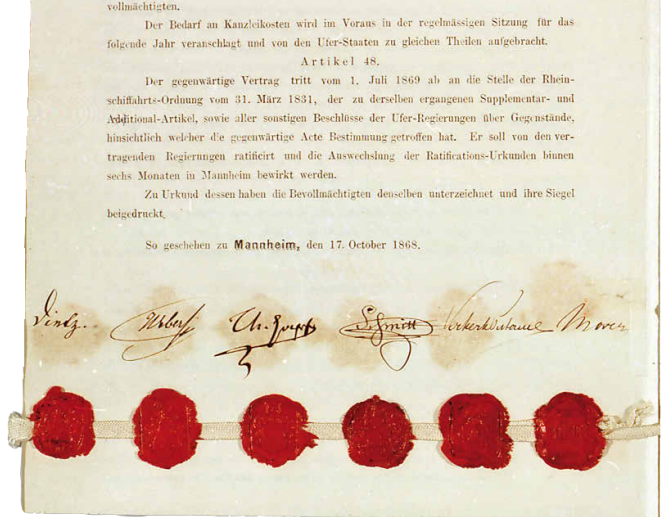 vollmächtigten.
Der Bedarf an Kanzleikosten wird im Voraus in der regelmässigen Sitzung für das
folgende Jahr veranschlagt und von den Ufer-Staaten zu gleichen Theilen aufgebracht.
Artikel 48.
Der gegenwärtige Vertrag tritt vom 1. Juli 1869 ab an die Stelle der Rhein-
schiffahrts-Ordnung vom 31. März 1831, der zu derselben ergangenen Supplementar- und
Additional-Artikel, sowie aller sonstigen Beschlüsse der Ufer-Regierungen über Gegenstände,
hinsichtlich welcher die gegenwärtige Acte Bestimmung getroffen hat. Er soll von den ver-
tragenden Regierungen ratificirt und die Auswechslung der Ratifications-Urkunden binnen
sechs Monaten in Mannheim bewirkt werden.
Zu Urkund dessen haben die Bevollmächtigten denselben unterzeichnet und ihre Siegel
beigedruckt.
So geschehen zu Mannheim, den 17. October 1868.
Dietz. Weber Schmitt Verkerk Pistorius Moser